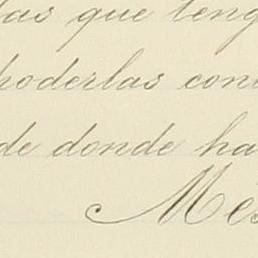 las que teng
poderlas con
de donde ha
Méx